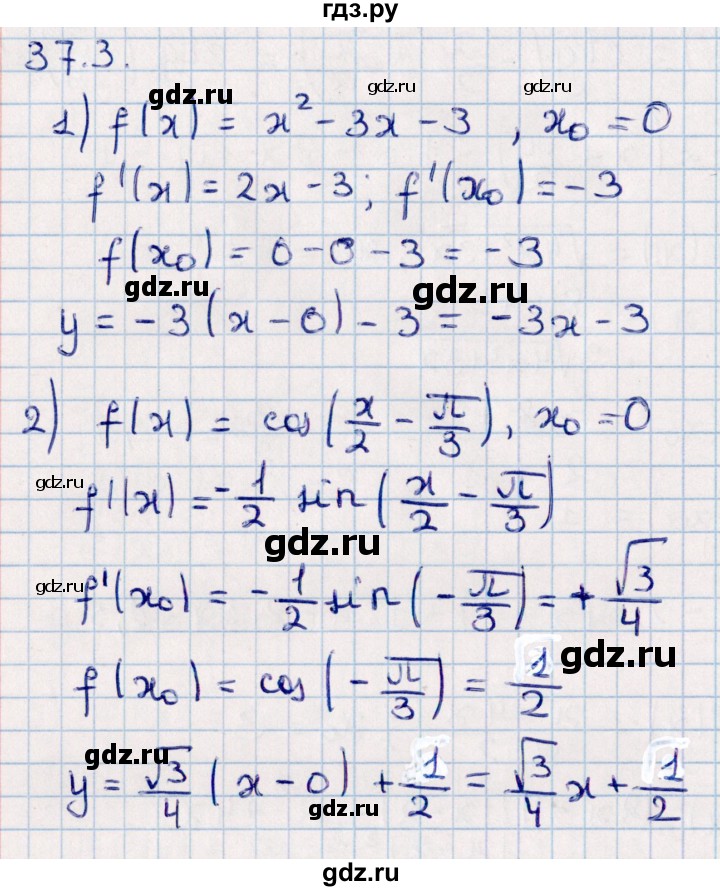 гдз.ру
37.3.
gdz.ru gdz.ru gdz.ru
1) f(x) = x² - 3x - 3 , x₀ = 0
f'(x) = 2x - 3; f'(x₀) = -3
f(x₀) = 0 - 0 - 3 = -3
gdz.ru gdz.ru
y = -3(x - 0) - 3 = -3x - 3
2) f(x) = cos(x/2 - π/3), x₀ = 0
gdz.ru gdz.ru
f'(x) = -1/2 sin(x/2 - π/3)
gdz.ru
gdz.ru f'(x₀) = -1/2 sin(-π/3) = +√3/4
gdz.ru
f(x₀) = cos(-π/3) = 1/2
gdz.ru
y = √3/4 (x - 0) + 1/2 = √3/4 x + 1/2
gdz.ru gdz.ru
gdz.ru